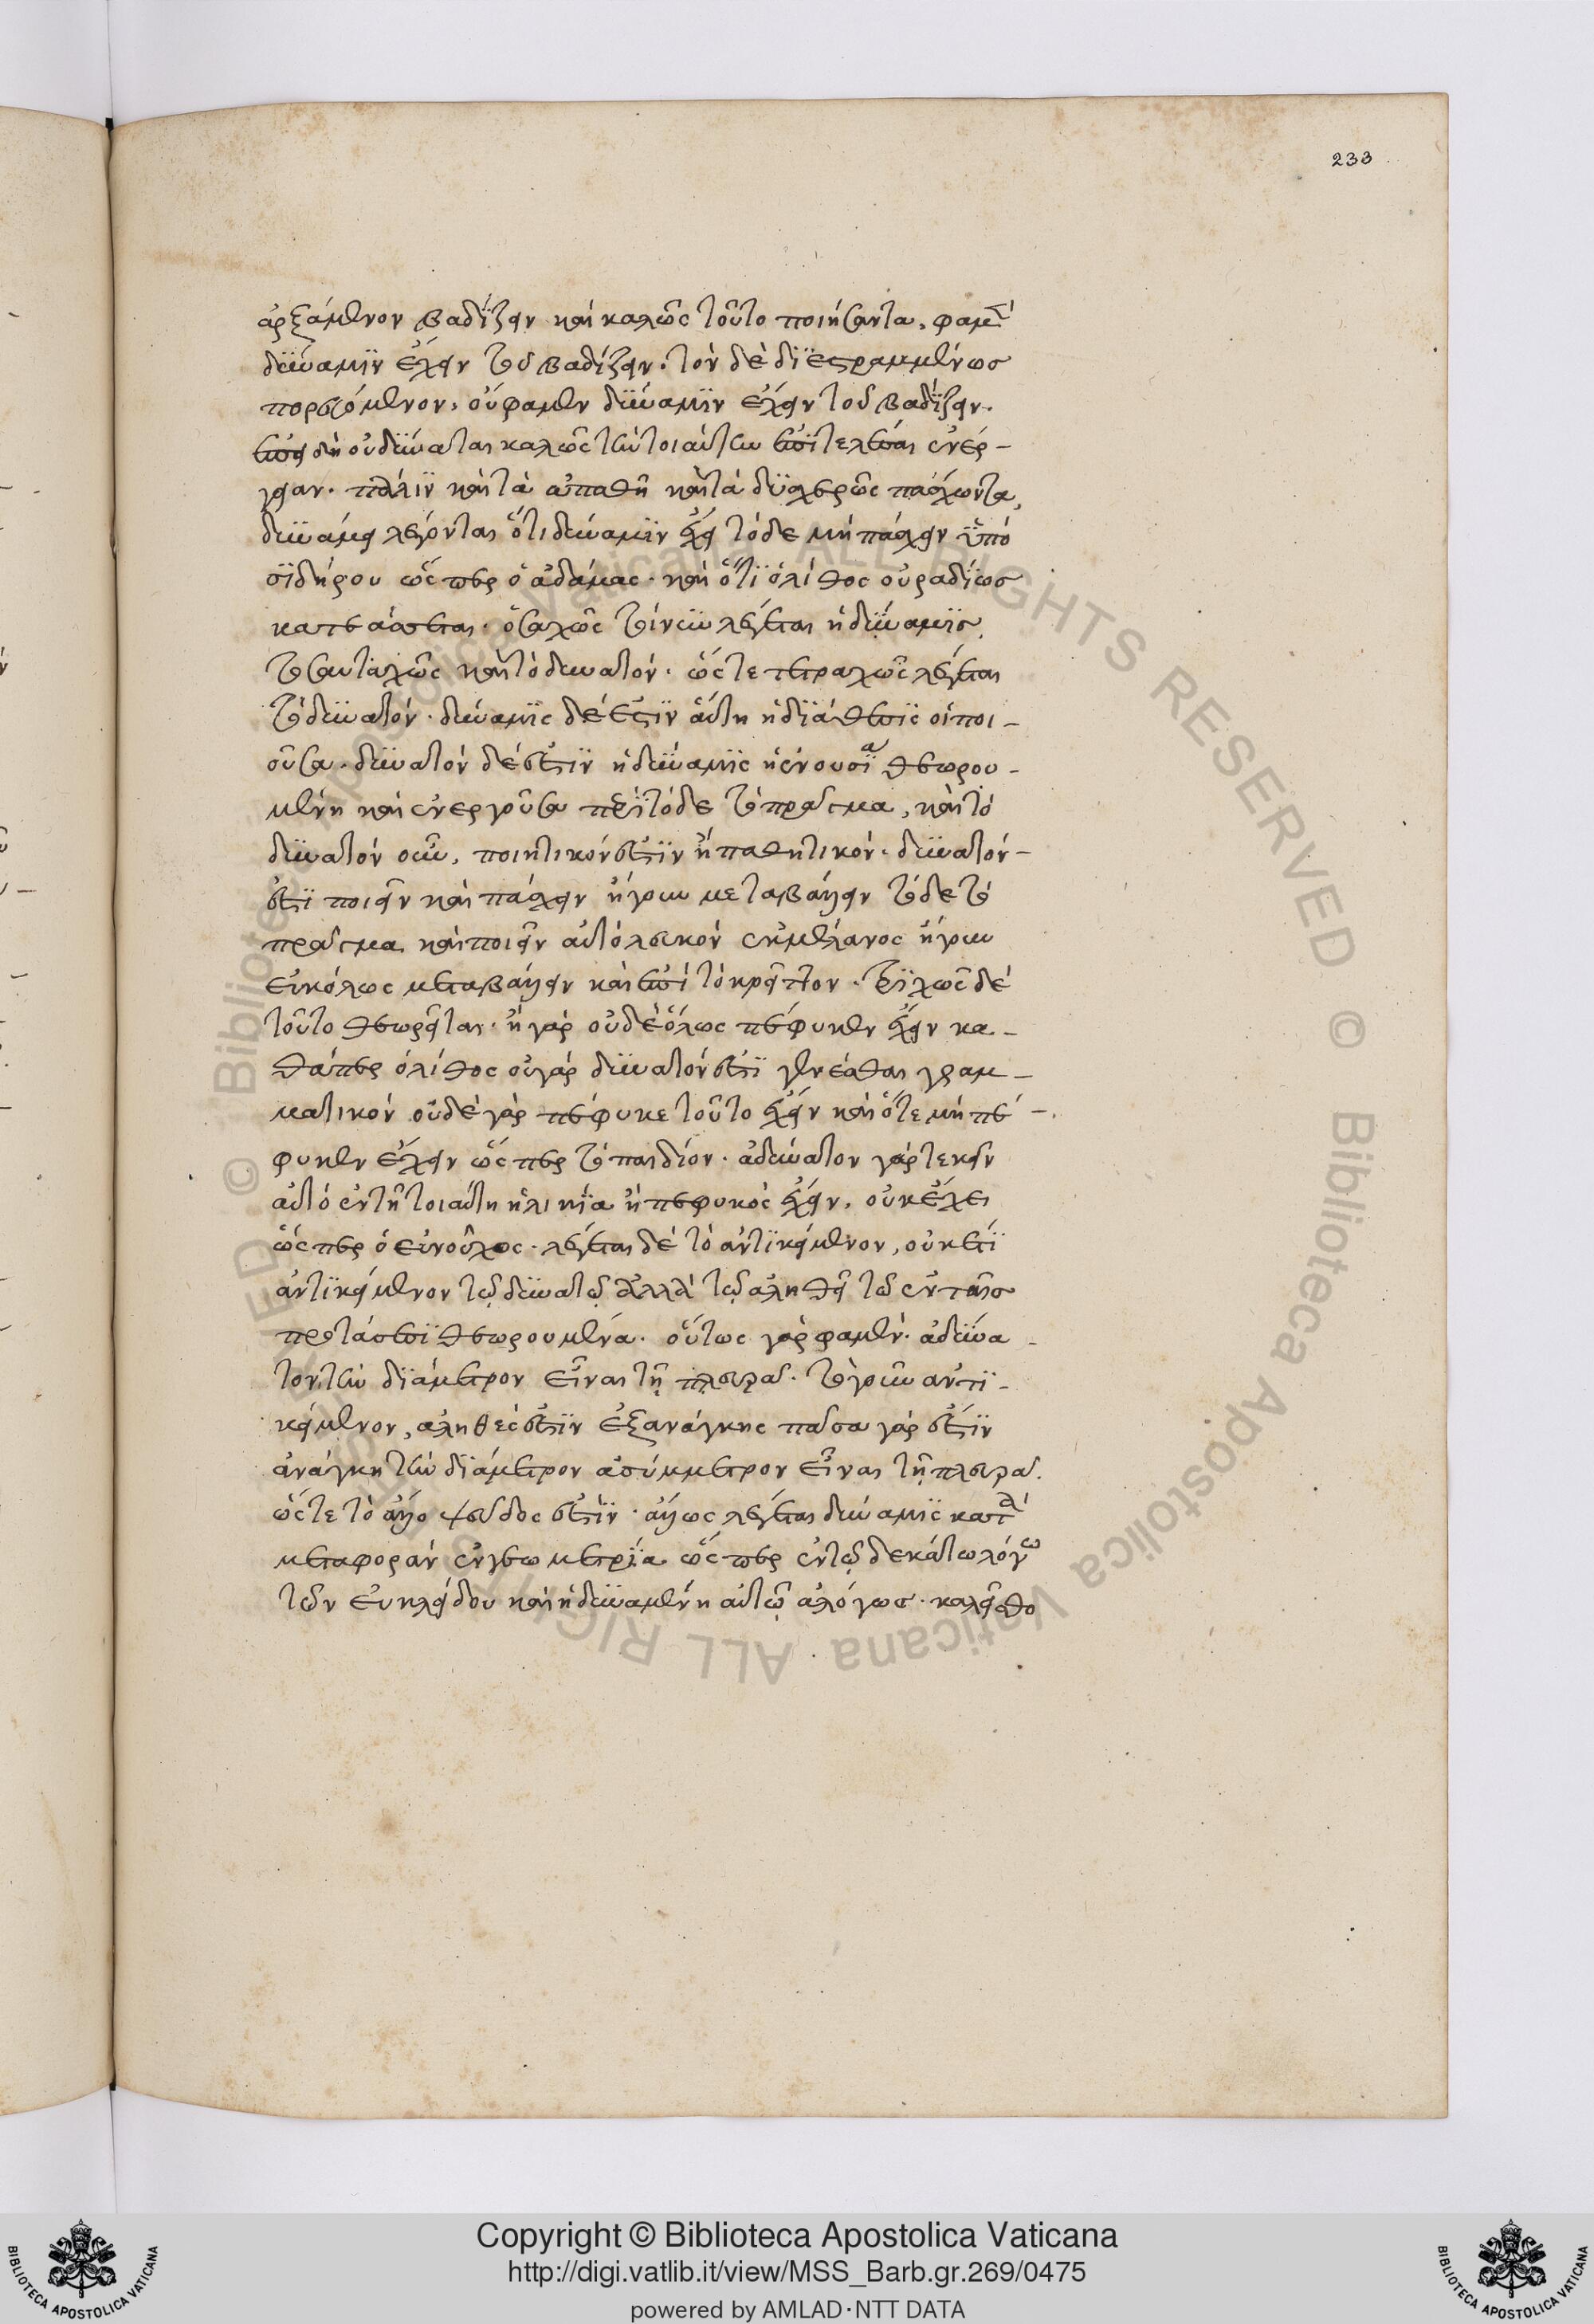 233
ἀρξάμενον βαδίζειν καὶ καλῶς τοῦτο ποιήσαντα, φαμὲν
δύναμϊν ἔχειν τοῦ βαδίζειν. τὸν δὲ δϊεστραμμένως
πορευόμενον, οὔ φαμεν δύναμϊν ἔχειν τοῦ βαδίζειν.
ἐπεὶ δὴ οὐ δύναται καλῶς τὴν τοιαύτην ἐπϊτελέσαι ἐνέρ-
γειαν. πάλϊν καὶ τὰ ἀπαθῆ καὶ τὰ δυσχερῶς πάσχοντα,
δυνάμει λέγονται ὅτι δύναμϊν ἔχει τόδε μὴ πάσχειν ὑπὸ
σϊδήρου ὥς περ ὁ ἀδάμας. καὶ ὅτϊ ὁ λίθος οὐ ῥαδίως
κατεάσεται. ὁσαχῶς τοίνυν λέγεται ἡ δύναμϊς
τοσαυταχῶς καὶ τὸ δυνατόν. ὥς τε τετραχῶς λέγεται
τὸ δυνατόν. δύναμϊς δέ ἐστϊν αὕτη ἡ δϊάθεσϊς οἱ ποι-
οῦσα. δυνατὸν δέ ἐστϊν ἡ δύναμϊς ἡ ἐν οὐσία θεωρου-
μένη καὶ ἐνεργοῦσα περὶ τόδε τὸ πρᾶγμα, καὶ τὸ
δυνατὸν οὖν, ποιητικόν ἐστϊν ἢ παθητικόν. δυνατόν-
ἐστϊ ποιεῖν καὶ πάσχειν ἤγουν μεταβάλλειν τόδε τὸ
πρᾶγμα καὶ ποιεῖν αὐτὸ λευκὸν ἐκ μέλανος ἤγουν
εὐκόλως μεταβάλλειν καὶ ἐπὶ τὸ κρεῖττον. τρϊχῶς δὲ
τοῦτο θεωρεῖται. ἢ γὰρ οὐδὲ ὅλως πέφυκεν ἔχειν κα-
θάπερ ὁ λίθος οὐ γὰρ δυνατόν ἐστϊ γενέσθαι γραμ-
ματικὸν οὐδὲ γὰρ πέφυκε τοῦτο ἔχειν καὶ ὅτε μὴ πέ-
φυκεν ἔχειν ὥς περ τὸ παιδίον. ἀδύνατον γὰρ τεκεῖν
αὐτὸ ἐν τῇ τοιαύτη ἡλικία ἢ πεφυκὸς ἔχειν, οὐκ ἔχει
ὥς περ ὁ εὐνοῦχος. λέγεται δὲ τὸ ἀντϊκείμενον, οὐκ ἔτϊ
ἀντϊκείμενον τῷ δυνατῷ ἀλλὰ τῷ ἀληθεῖ τῷ ἐν ταῖς
προτάσεσϊ θεωρουμένα. οὕτως γὰρ φαμέν. ἀδύνα-
τον τὴν δϊάμετρον εἶναι τῇ πλευρᾶ. τὸ γοῦν ἀντϊ-
κείμενον, ἀληθές ἐστϊν ἐξ ἀνάγκης πᾶσα γάρ ἐστϊν
ἀνάγκη τὴν διάμετρον ἀσύμμετρον εἶναι τῇ πλευρᾶ.
ὥς τε τὸ ἄλλο ψεῦδος ἐστϊν. ἄλλως λέγεται δύναμϊς κατὰ
μεταφορὰν ἐν γεωμετρία ὥς περ ἐν τῷ δεκάτω λόγω
τῶν εὐκλείδου καὶ ἡ δυναμένη αὐτῷ ἀλόγως. καλείσθο
Copyright © Biblioteca Apostolica Vaticana
http://digi.vatlib.it/view/MSS_Barb.gr.269/0475
powered by AMLAD·NTT DATA